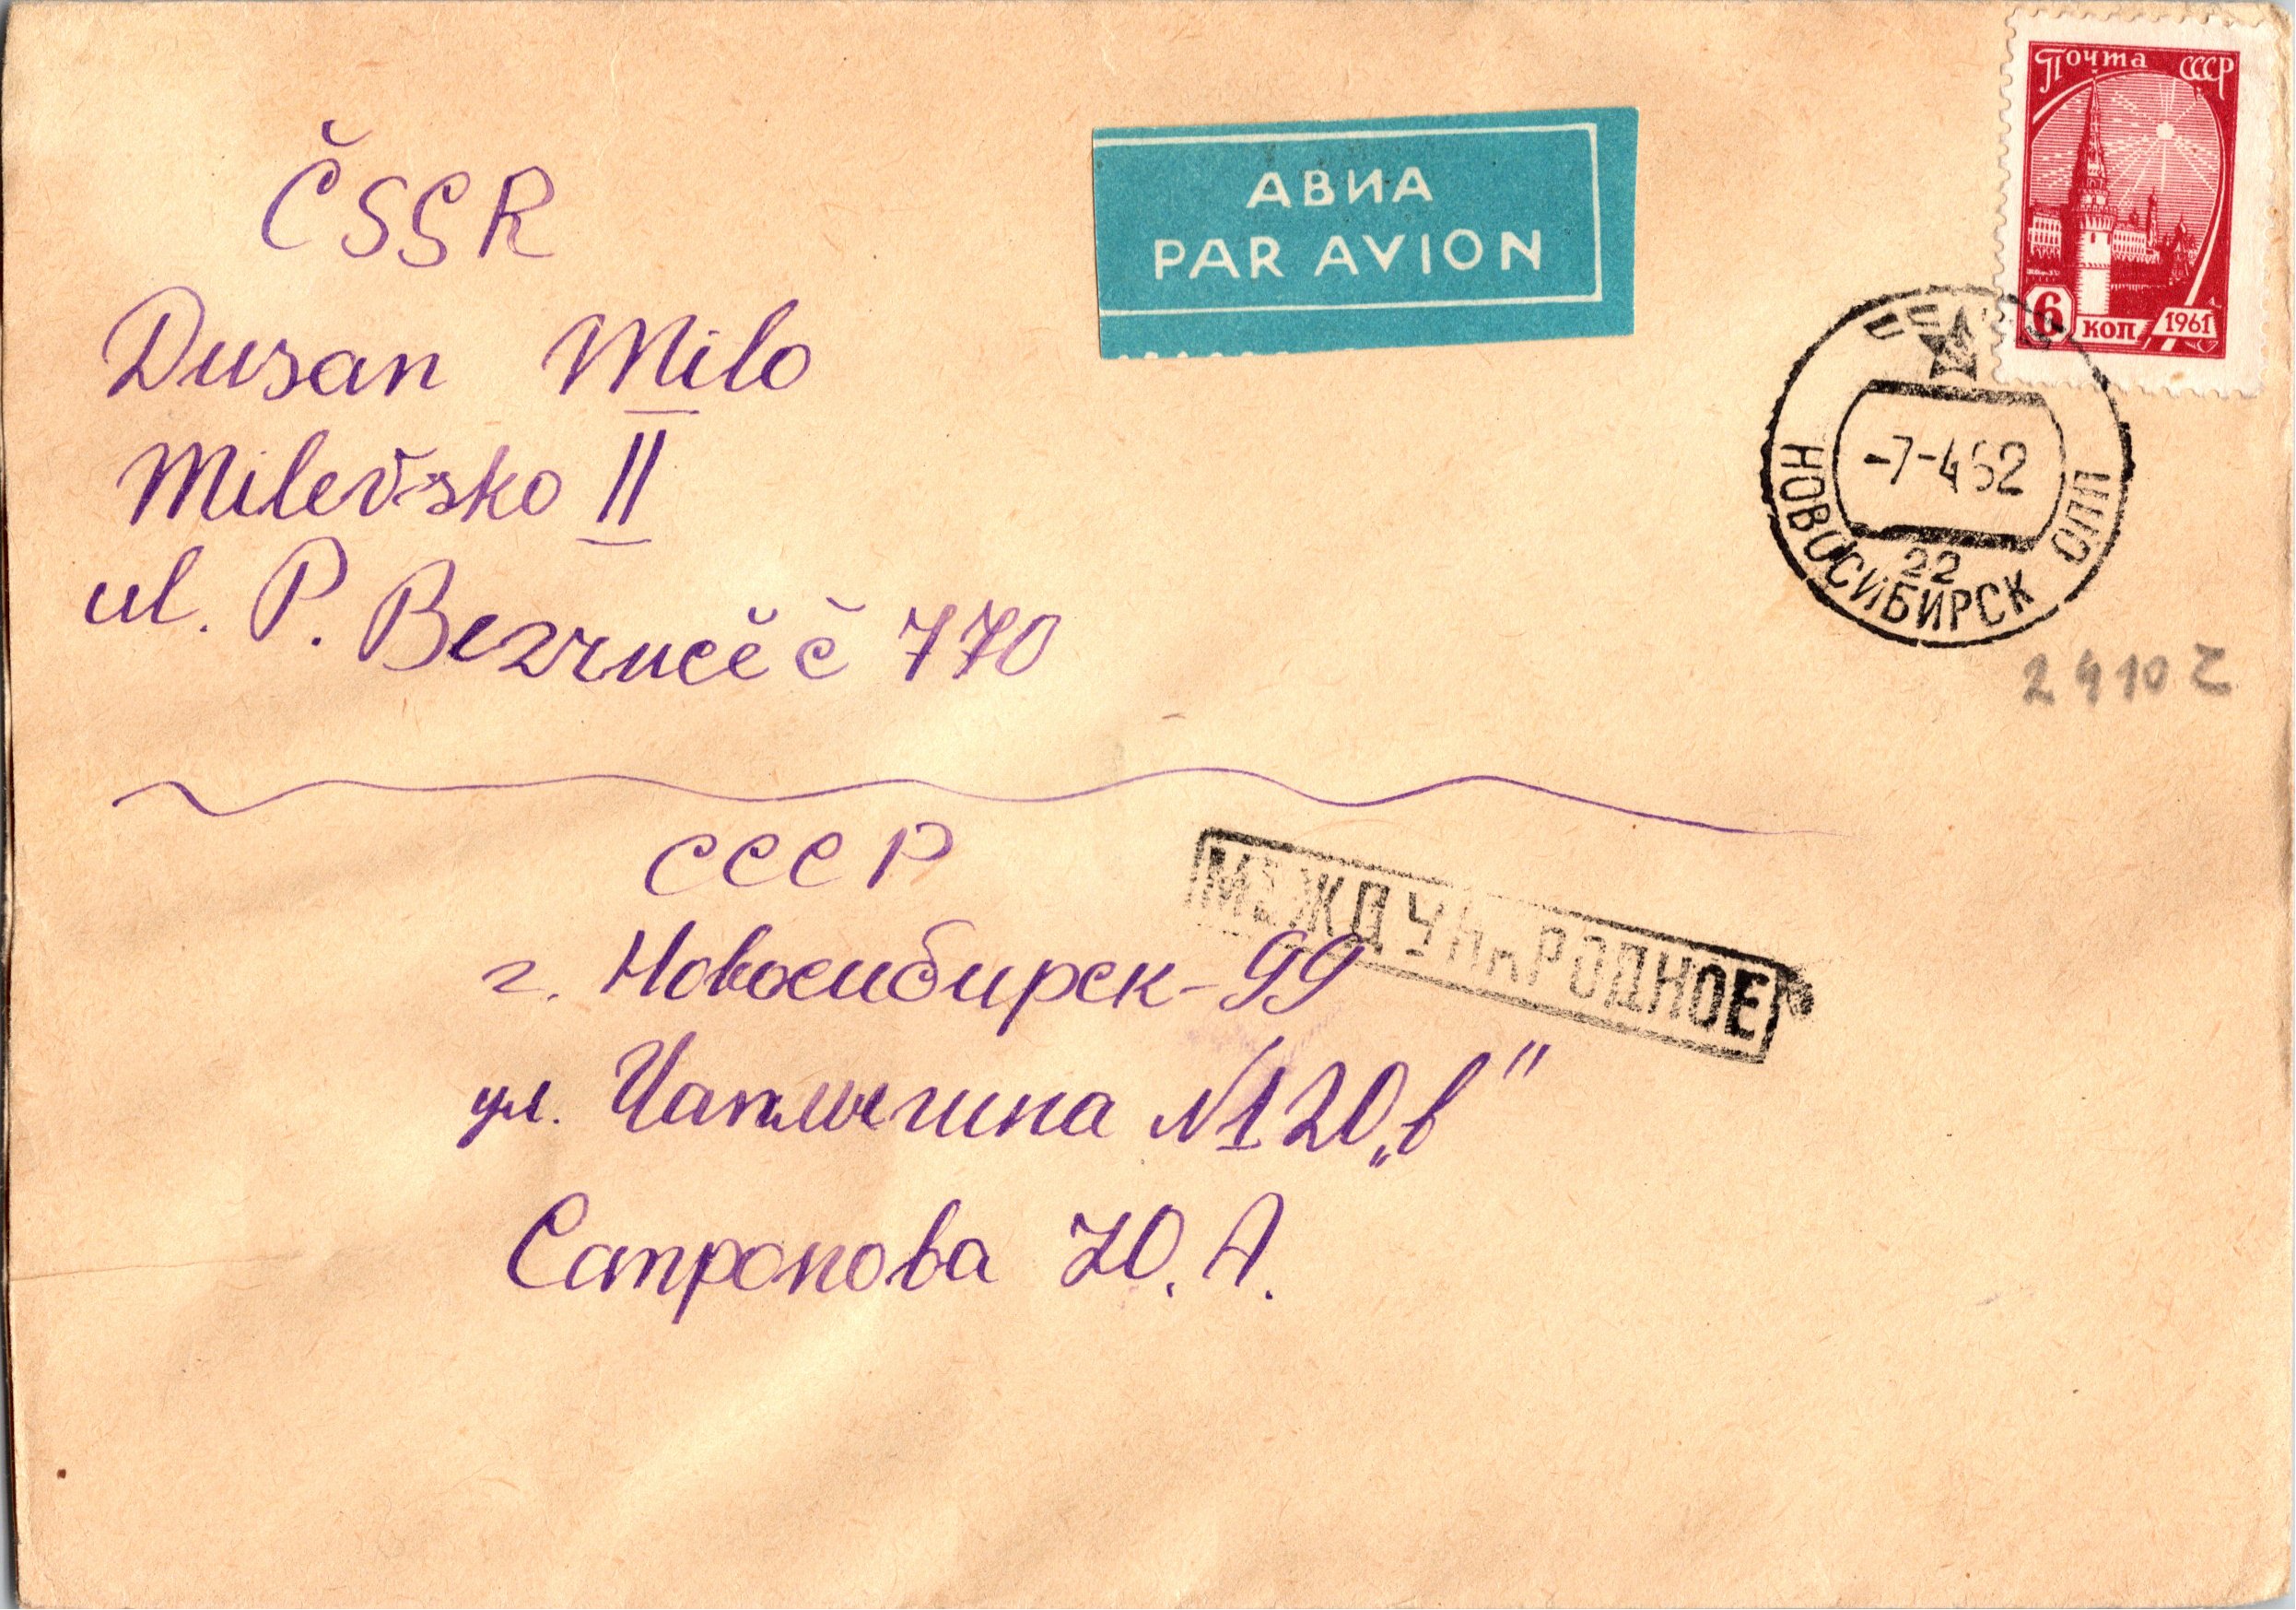 ČSSR
Dusan Milo
Milevsko II
ul. P. Bezručě č 770
АВИА
PAR AVION
Почта СССР
6 коп 1961
-7-462
22
НОВОСИБИРСК ОПП
2410 Z
СССР
МЕЖДУНАРОДНОЕ
г. Новосибирск-99
ул. Чаплыгина №120 „в"
Ю. А.